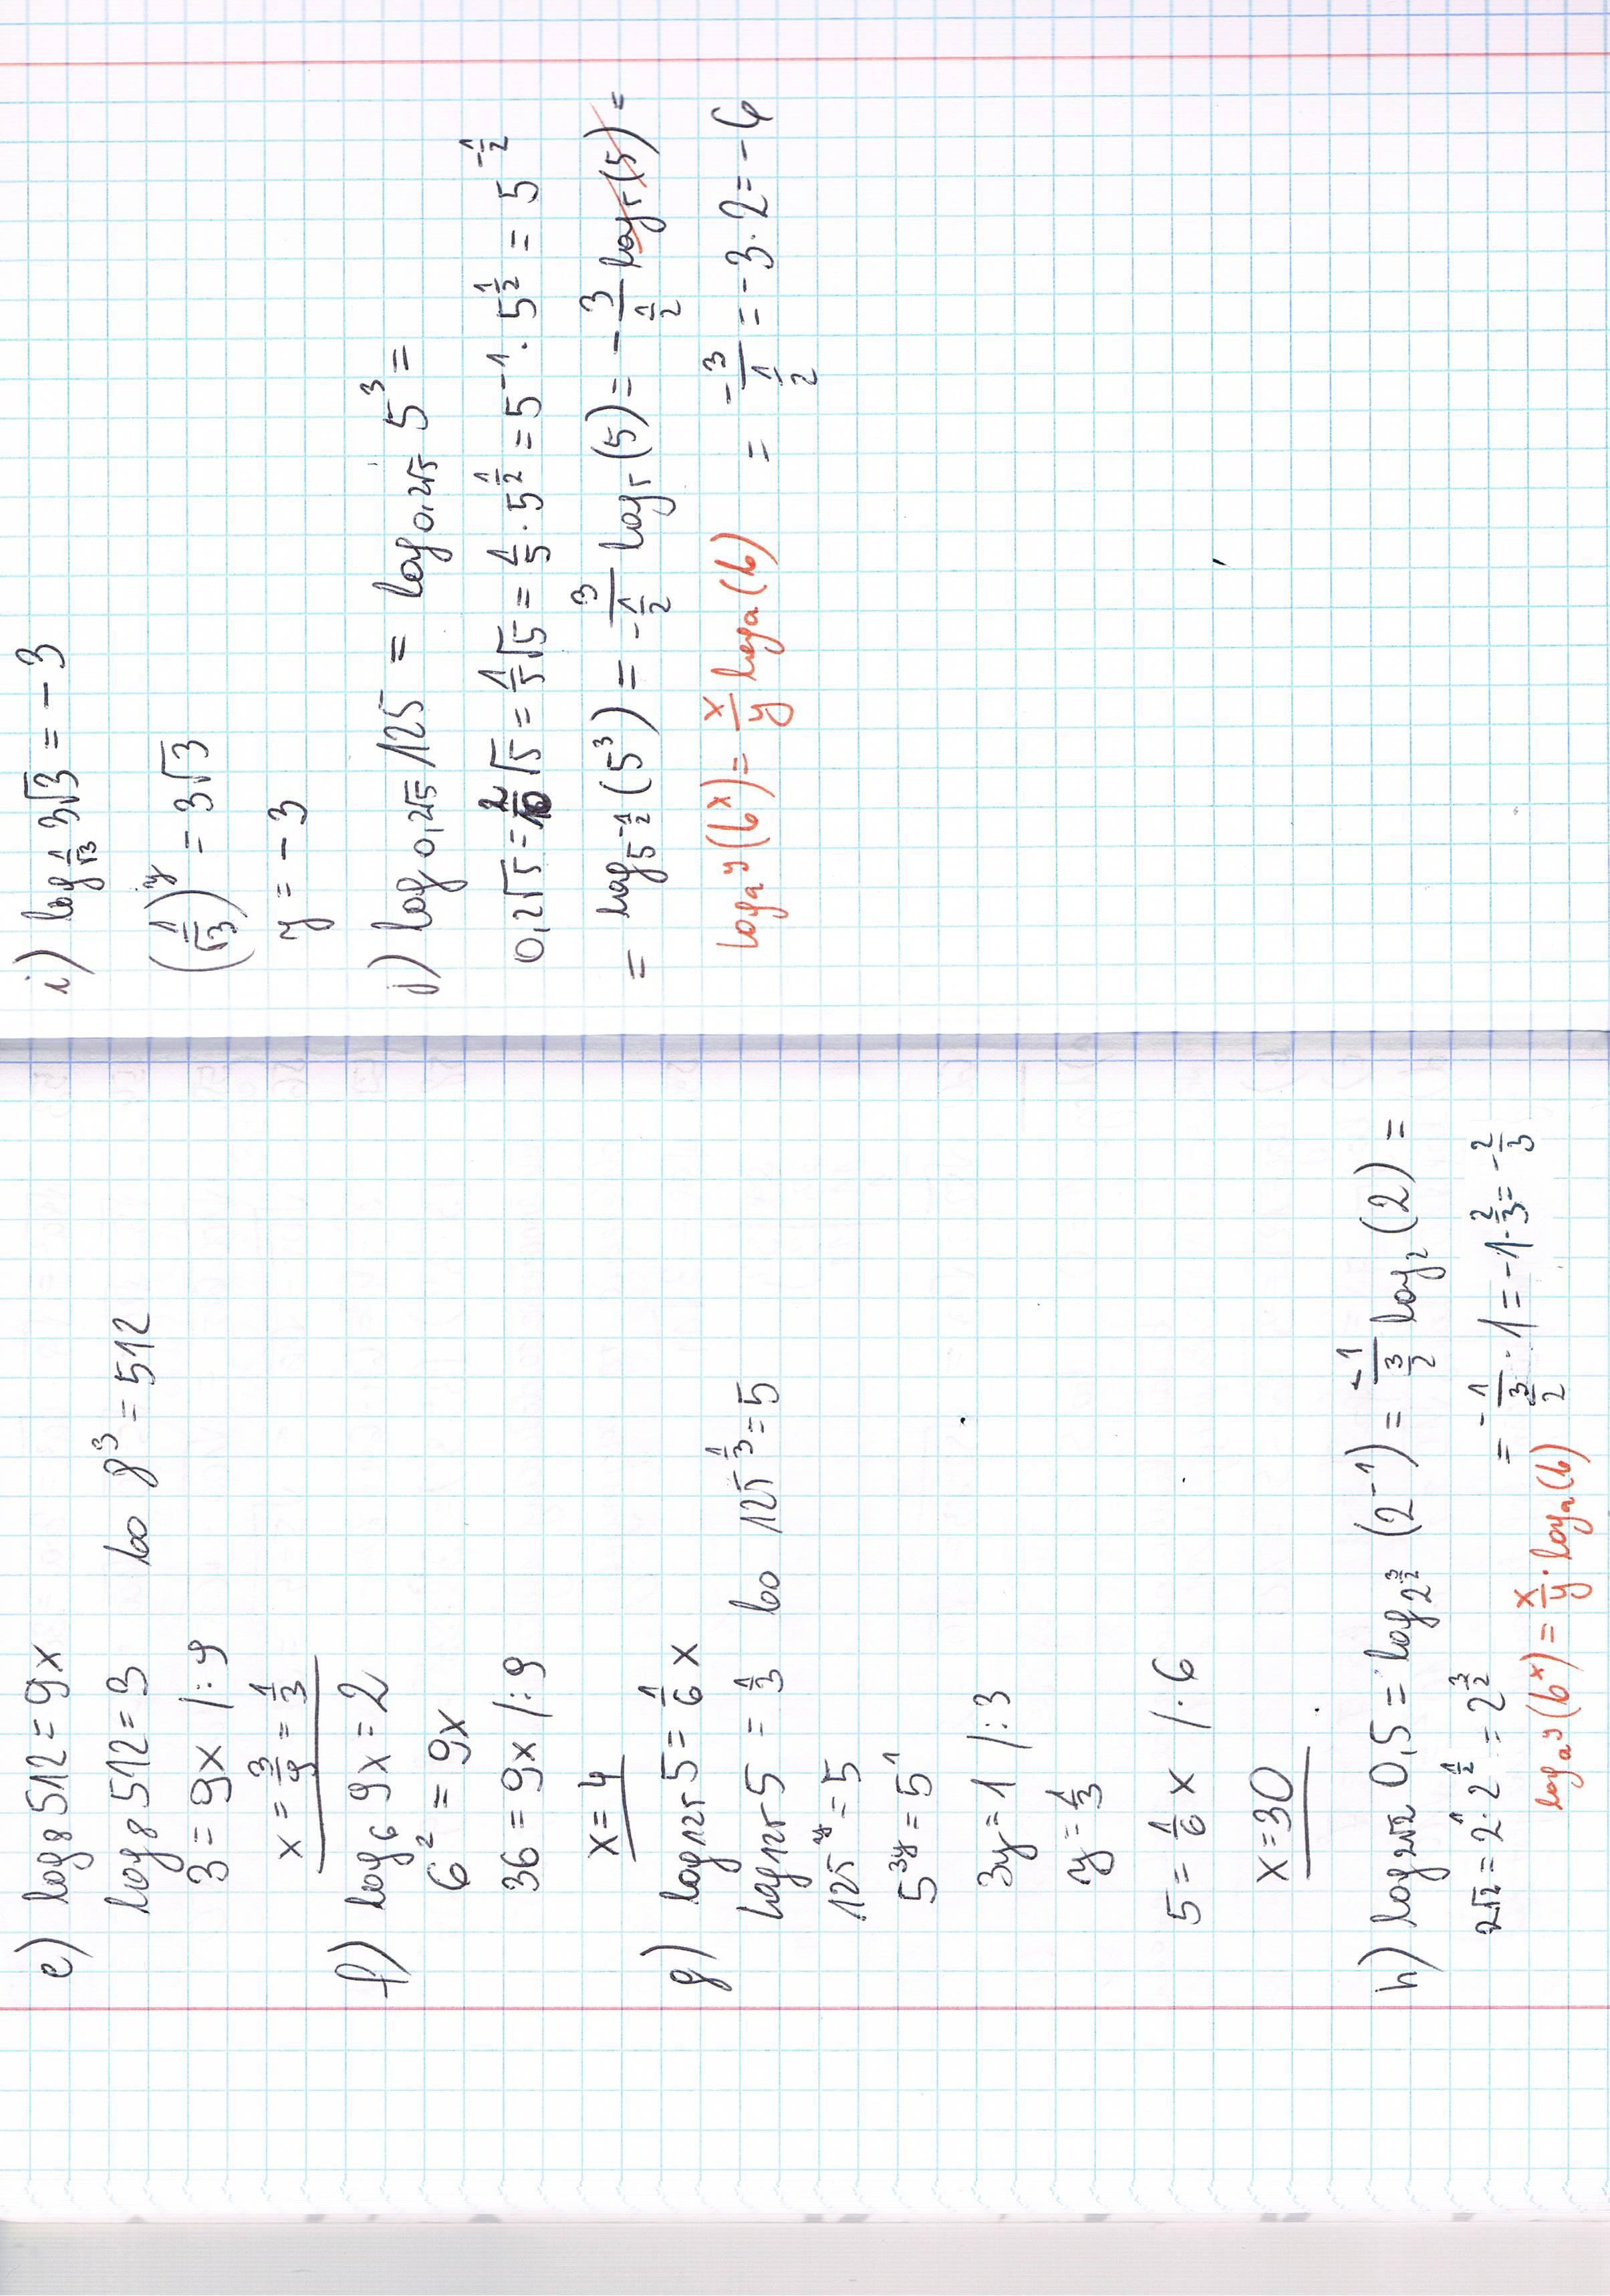 e) log₈ 512 = 9x
log₈ 512 = 3 bo 8³ = 512
3 = 9x /:9
x = 3/9 = 1/3
f) log₆ 9x = 2
6² = 9x
36 = 9x /:9
x = 4
g) log₁₂₅ 5 = 1/6 x
log₁₂₅ 5 = 1/3 bo 125^(1/3) = 5
125^y = 5
5^(3y) = 5¹
3y = 1 /:3
y = 1/3
5 = 1/6 x /·6
x = 30
h) log_(2√2) 0,5 = log_(2^(3/2)) (2⁻¹) = (-1)/(3/2) log₂ (2) =
2√2 = 2¹·2^(1/2) = 2^(3/2)
= -1/(3/2) · 1 = -1·2/3 = -2/3
log_(a^y) (b^x) = x/y · log_a (b)
i) log_(1/√3) 3√3 = -3
(1/√3)^y = 3√3
y = -3
j) log_(0,2√5) 125 = log_(0,2√5) 5³ =
0,2√5 = 2/10 √5 = 1/5 √5 = 1/5 · 5^(1/2) = 5⁻¹ · 5^(1/2) = 5^(-1/2)
= log_(5^(-1/2)) (5³) = 3/(-1/2) log₅ (5) = - 3/(1/2) log₅ (5) =
log_(a^y) (b^x) = x/y log_a (b)
= - 3/(1/2) = -3·2 = -6